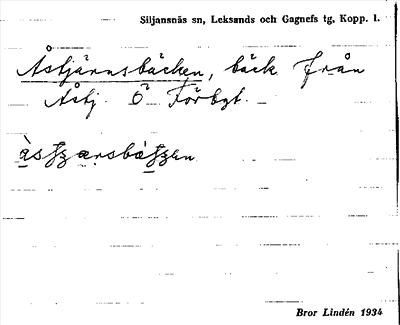 Siljansnäs sn, Leksands och Gagnefs tg, Kopp. l.
Åstjärnsbäcken, bäck från
Åstj. Ö Förbgt.
Bror Lindén 1934